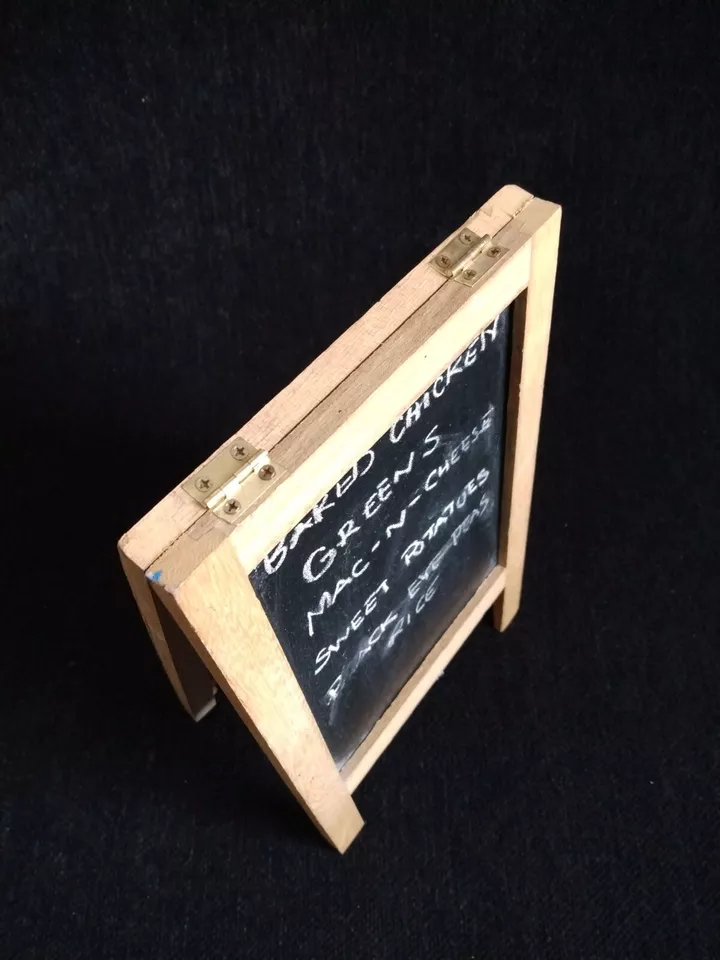 BAKED CHICKEN
GREENS
MAC-N-CHEESE
SWEET POTATOES
BLACK EYE PEAS
RICE